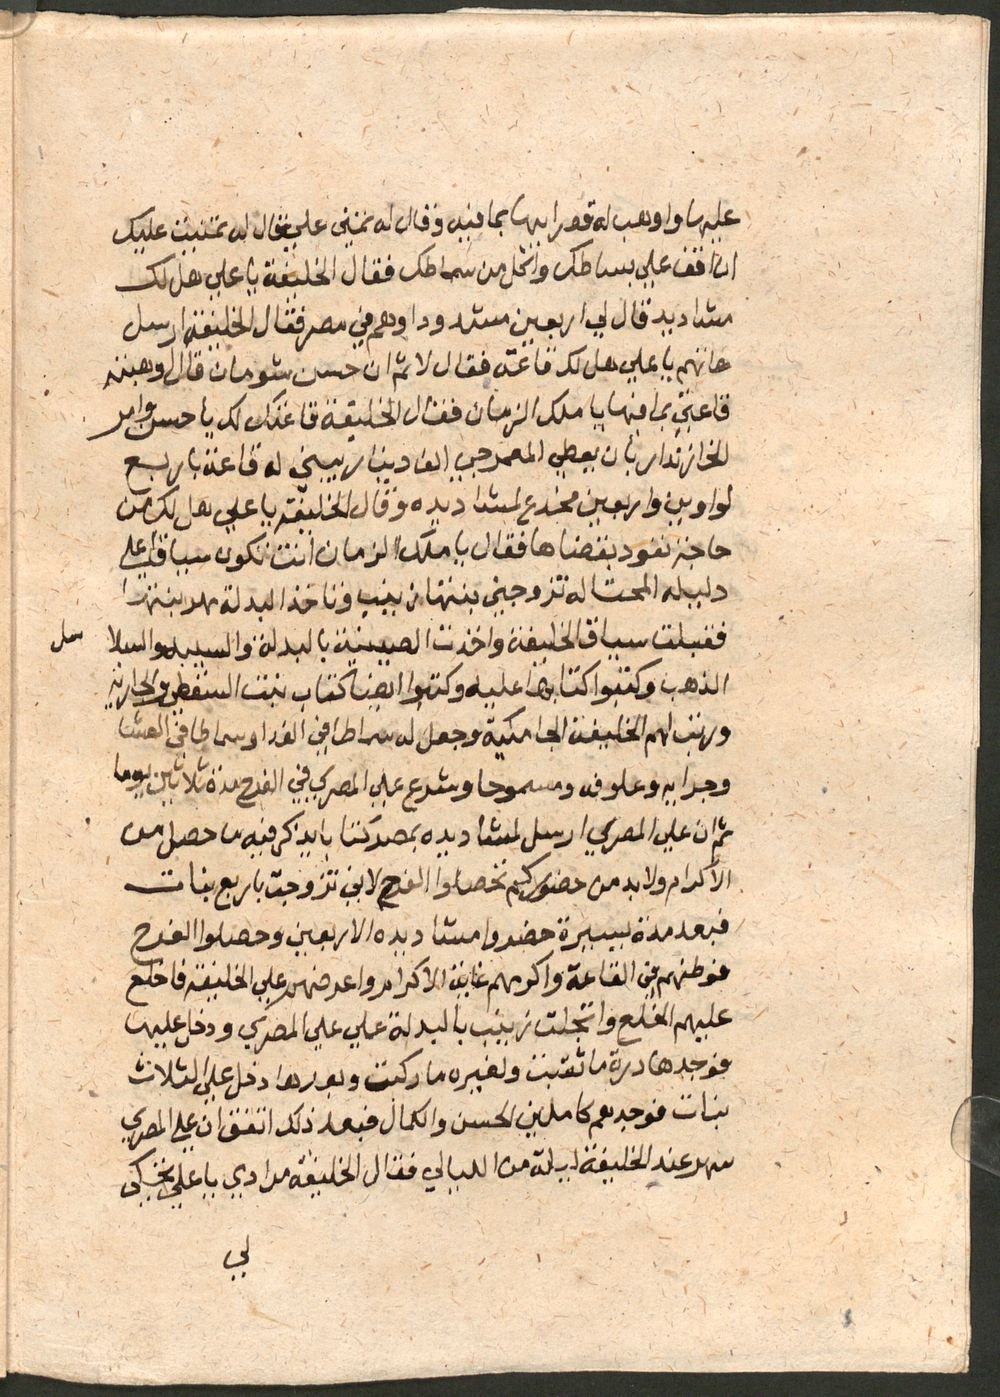 عليها واوهب له قصرا يها بما فيه وقال له تمني علي فقال له تمنيت عليك
ان اقف علي بساطك واكل من سماطك فقال الخليفة يا علي هل لك
مشاديد قال لي اربعين مشدودا وهم في مصر فقال الخليفة ارسل
هاتهم يا علي هل لك قاعة فقال لا ثم ان حسن شومان قال اوهبته
قاعتي بما فيها يا ملك الزمان فقال الخليفة قاعتك لك يا حسن وامر
للخازندار بان يعطي المعمرجي الف دينار يبني له قاعة باربع
لواوين واربعين مخدع لمشاديده وقال الخليفة يا علي هل لك من
حاجة نفود بقضاها فقال يا ملك الزمان انت تكون سياقا علي
دليله المحتاله تزوجني بنتها زينب وتاخذ البدلة مهر بنتها
فقبلت سياق الخليفة واخذت الصينية بالبدلة والسيبه والسلا سل
الذهب وكتبوا كتابها عليه وكتبوا ايضا كتاب بنت السقطي والجارية
ورتب لهم الخليفة الجامكية وجعل له سماطا في الغدا وسماطا في العشا
وجرايه وعلوفه ومسموحا وشرع علي المصري في الفرح مدة ثلاثين يوما
ثم ان علي المصري ارسل لمشاديده بمصر كتابا يذكر فيه ما حصل من
الاكرام ولابد من حضوركم تحصلوا الفرح لاني تزوجت باربع بنات
فبعد مدة يسيرة حضروا مشاديده الاربعين وحصلوا الفرح
فوطنهم في القاعة واكرمهم غاية الاكرام واعرضهم علي الخليفة فاخلع
عليهم الخلع وانجلت زينب بالبدلة علي علي المصري ودخل عليها
فوجدها درة ما ثقبت ولغيره ما ركبت وبعدها دخل علي الثلاث
بنات فوجدهم كاملين الحسن والكمال فبعد ذلك اتفق ان علي المصري
سهر عند الخليفة ليلة من الليالي فقال الخليفة مرادي يا علي تحكي
لي